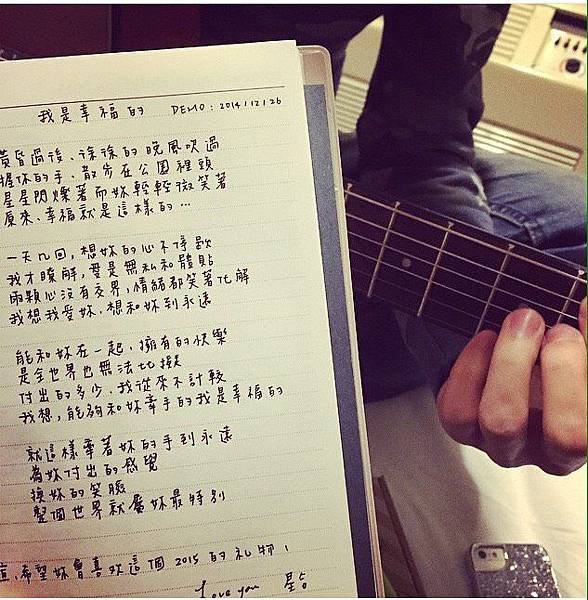 我是幸福的 DEMO:2014/12/26
黃昏過後、徐徐的晚風吹過
握妳的手、散步在公園裡頭
星星閃爍著而妳輕輕微笑著
原來、幸福就是這樣的…
一天幾回,想妳的心不停歇
我才瞭解,愛是無私和體貼
兩顆心沒有交界,情緒都笑著化解
我想我愛妳、想和妳到永遠
能和妳在一起、擁有的快樂
是全世界也無法比擬
付出的多少、我從來不計較
我想,能夠和妳牽手的我是幸福的
就這樣牽著妳的手到永遠
為妳付出的感覺
換妳的笑臉
整個世界就屬妳最特別
、希望妳會喜歡這個2015的礼物!
Love you